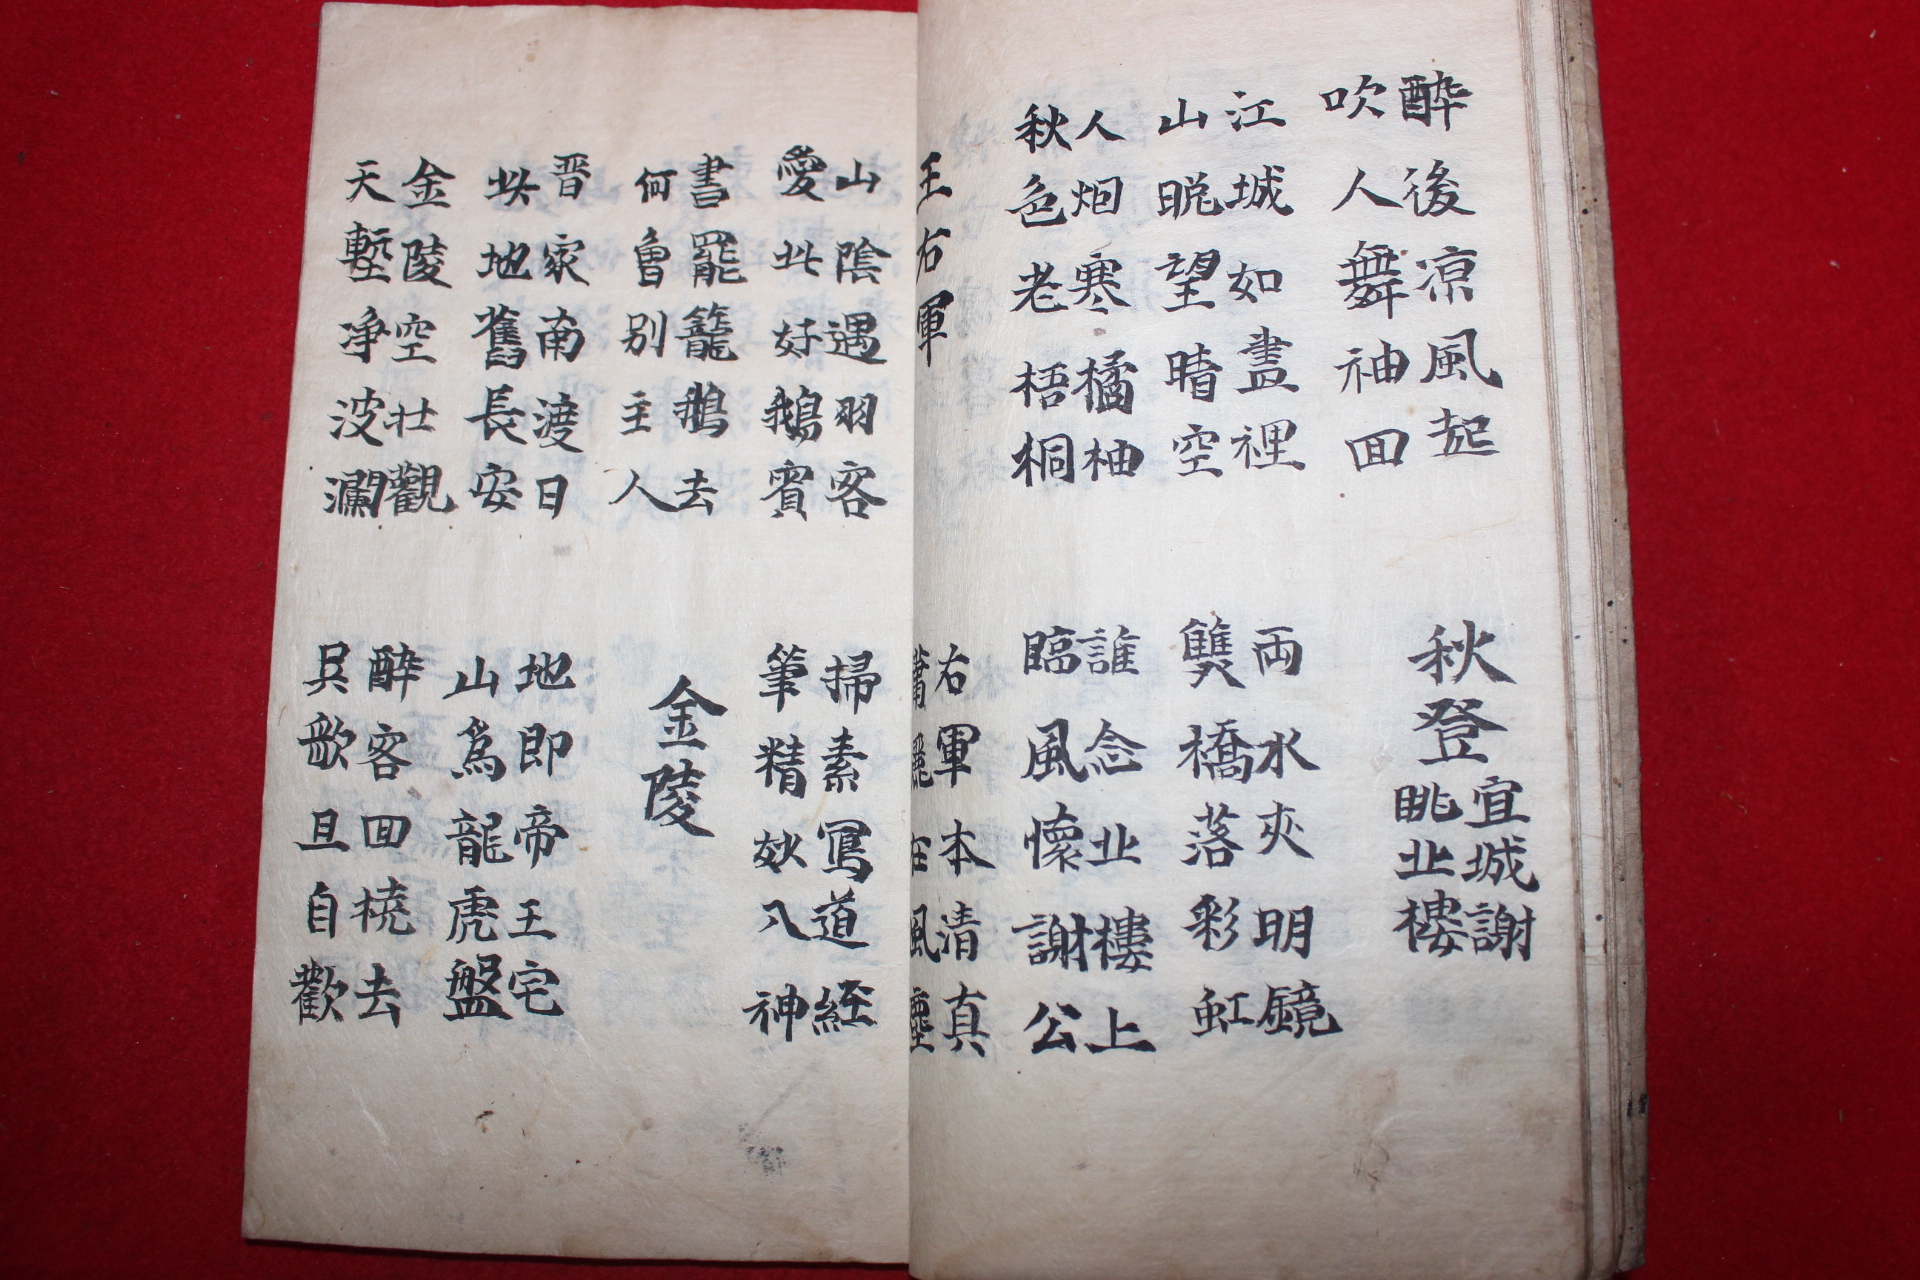 醉後凉風起
吹人舞袖回
秋登
宜城謝
眺北樓
江城如畫裡
山晩望晴空
両水夾明鏡
雙橋落彩虹
人烟寒橘柚
秋色老梧桐
誰念北樓上
臨風懷謝公
王右軍
右軍本清真
瀟灑在風塵
山陰遇羽客
愛此好鵝賓
掃素寫道經
筆精妙入神
書罷籠鵝去
何曾別主人
金陵
晋家南渡日
此地舊長安
地即帝王宅
山爲龍虎盤
金陵空壮觀
天塹淨波瀾
醉客回橈去
吳歌且自歡